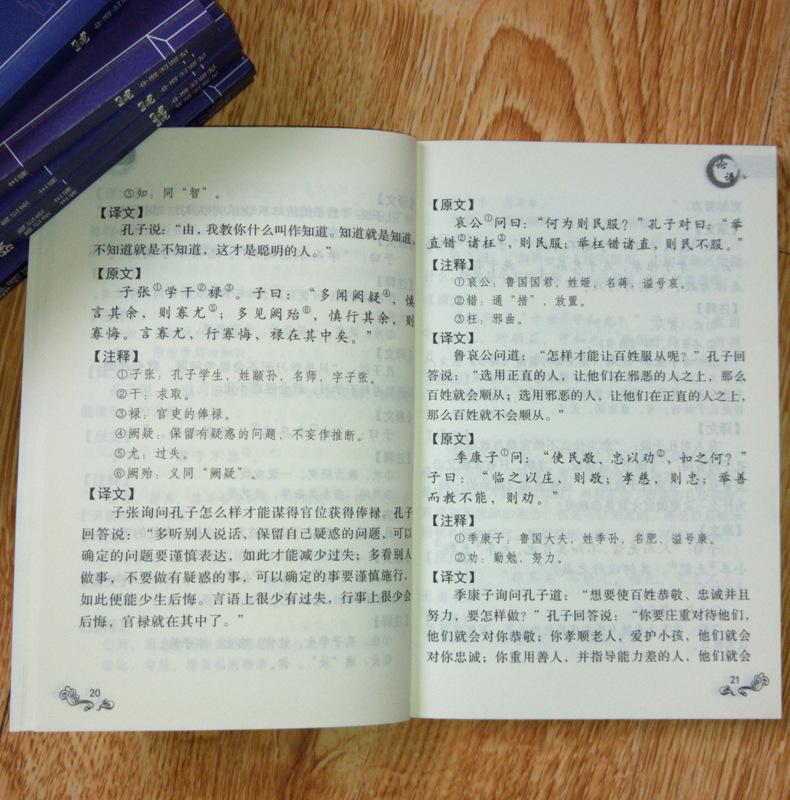 ③知：同“智”。
【译文】
孔子说：“由，我教你什么叫作知道。知道就是知道，
不知道就是不知道，这才是聪明的人。”
【原文】
子张①学干②禄③。子曰：“多闻阙疑④，慎
言其余，则寡尤⑤；多见阙殆⑥，慎行其余，则
寡悔。言寡尤，行寡悔，禄在其中矣。”
【注释】
①子张：孔子学生，姓颛孙，名师，字子张。
②干：求取。
③禄：官吏的俸禄。
④阙疑：保留有疑惑的问题，不妄作推断。
⑤尤：过失。
⑥阙殆：义同“阙疑”。
【译文】
子张询问孔子怎么样才能谋得官位获得俸禄。孔子
回答说：“多听别人说话，保留自己疑惑的问题，可以
确定的问题要谨慎表达，如此才能减少过失；多看别人
做事，不要做有疑惑的事，可以确定的事要谨慎施行，
如此便能少生后悔。言语上很少有过失，行事上很少会
后悔，官禄就在其中了。”
20
论语
【原文】
哀公①问曰：“何为则民服？”孔子对曰：“举
直错②诸枉③，则民服；举枉错诸直，则民不服。”
【注释】
①哀公：鲁国国君，姓姬，名蒋，谥号哀。
②错：通“措”，放置。
③枉：邪曲。
【译文】
鲁哀公问道：“怎样才能让百姓服从呢？”孔子回
答说：“选用正直的人，让他们在邪恶的人之上，那么
百姓就会顺从；选用邪恶的人，让他们在正直的人之上，
那么百姓就不会顺从。”
【原文】
季康子①问：“使民敬、忠以劝②，如之何？”
子曰：“临之以庄，则敬；孝慈，则忠；举善
而教不能，则劝。”
【注释】
①季康子，鲁国大夫，姓季孙，名肥，谥号康。
②劝：勤勉，努力。
【译文】
季康子询问孔子道：“想要使百姓恭敬、忠诚并且
努力，要怎样做？”孔子回答说：“你要庄重对待他们，
他们就会对你恭敬；你孝顺老人，爱护小孩，他们就会
对你忠诚；你重用善人，并指导能力差的人，他们就会
21